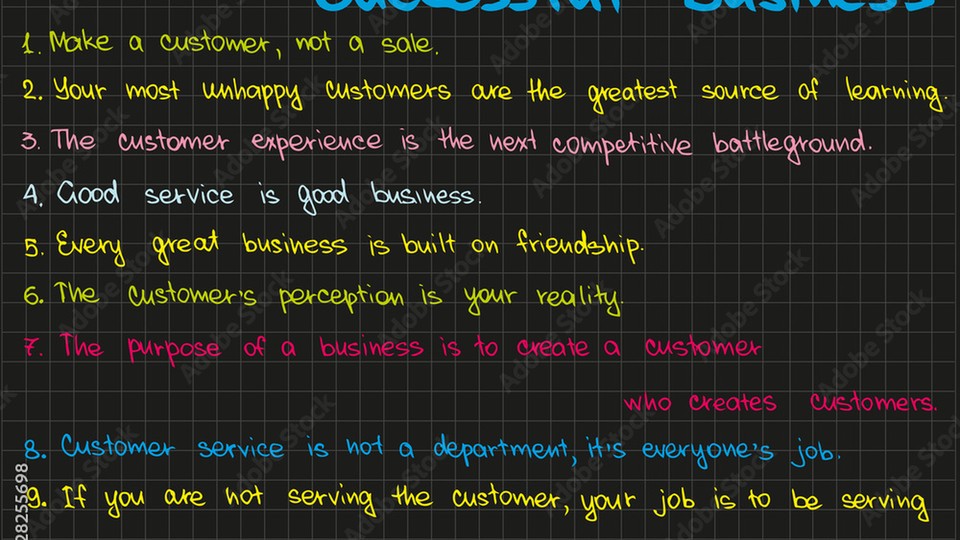 Successful Business
1. Make a customer, not a sale.
2. Your most unhappy customers are the greatest source of learning.
3. The customer experience is the next competitive battleground.
4. Good service is good business.
5. Every great business is built on friendship.
6. The customer's perception is your reality.
7. The purpose of a business is to create a customer
who creates customers.
8. Customer service is not a department, it's everyone's job.
9. If you are not serving the customer, your job is to be serving
Adobe Stock
28255698